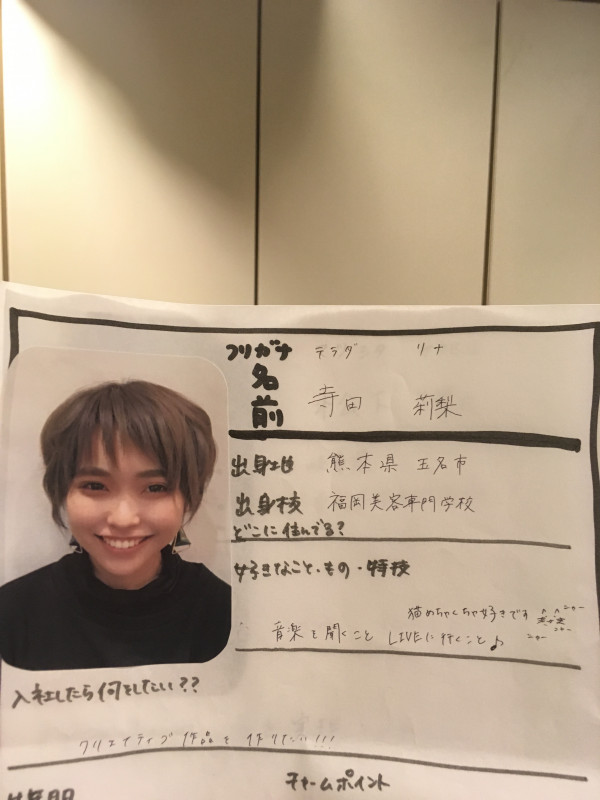 フリガナ テラダ リナ
名前 寺田 莉梨
出身地 熊本県 玉名市
出身校 福岡美容専門学校
どこに住んでる?
好きなこと・もの・特技
猫めちゃくちゃ好きです ニャー
ニャー
ニャー
音楽を聞くこと LIVEに行くこと♪
入社したら何をしたい??
クリエイティブ作品を作りたい!!!
チャームポイント